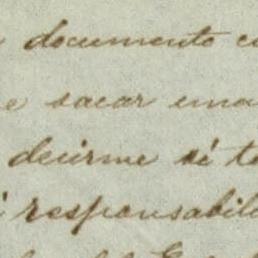 documento
e sacar una
decirme si
responsabili